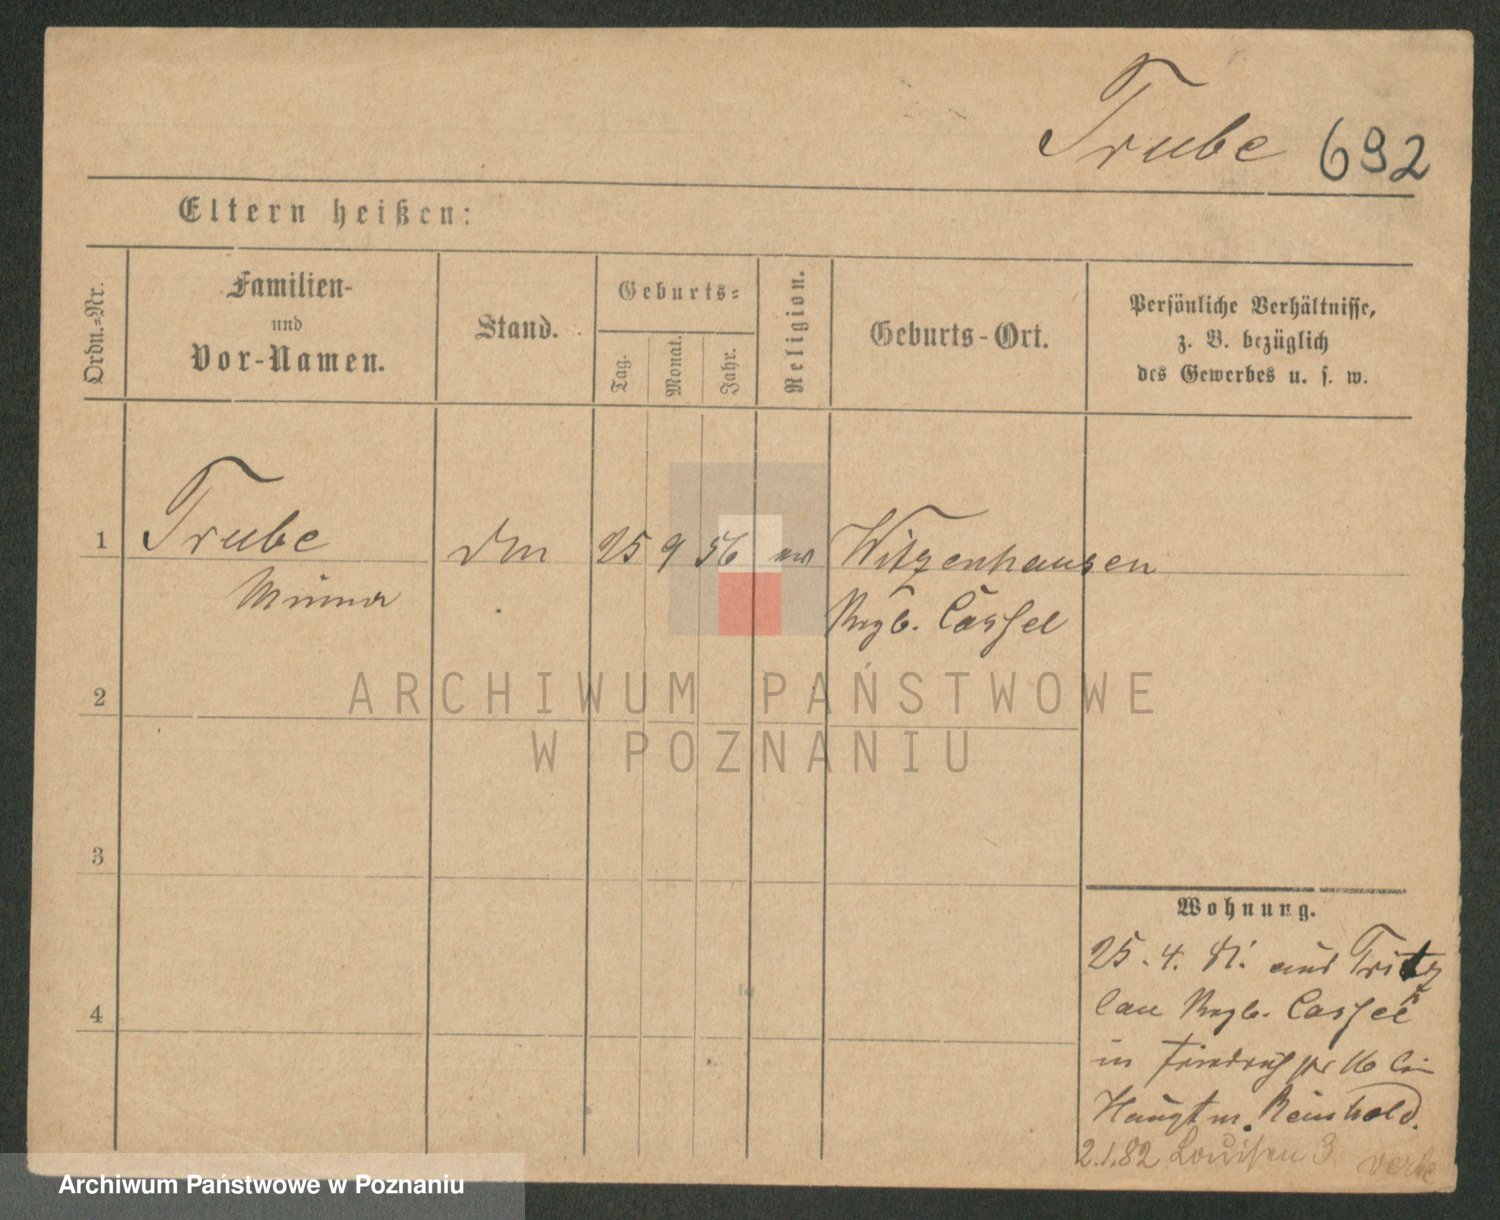 Trube 692
Eltern heißen:
Ordn.-Nr.
Familien-
und
Vor-Namen.
Stand.
Geburts-
Tag.
Monat.
Jahr.
Religion.
Geburts-Ort.
Persönliche Verhältnisse,
z. B. bezüglich
des Gewerbes u. s. w.
1 Trube 25 9 56 ev Witzenhausen
Minna Rgb. Cassel
2
3
4
ARCHIWUM PAŃSTWOWE
W POZNANIU
Wohnung.
25. 4. 81. aus Fritz
lar Rgb. Cassel
in Friedrichstr 16 bei
Hauptm. Reinhold.
2.1.82 Louisen 3 verte
Archiwum Państwowe w Poznaniu